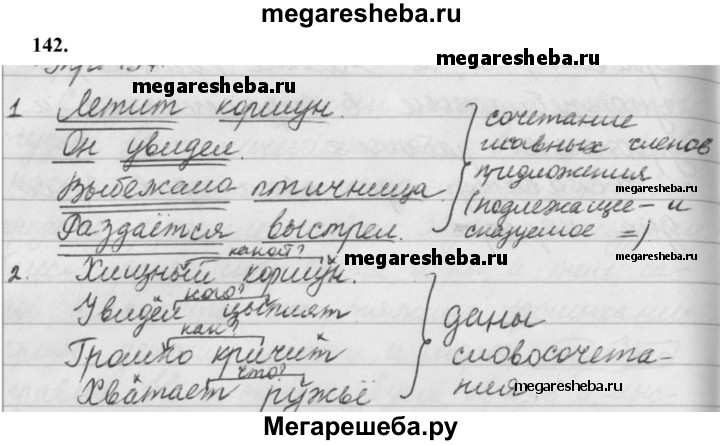 megaresheba.ru
142.
megaresheba.ru
1 Летит коршун.
Он увидел.
Выбежала птичница.
Раздаётся выстрел.
сочетание
главных членов
предложения
(подлежащее — и
сказуемое =)
megaresheba.ru
megaresheba.ru
какой?
2. Хищный коршун.
megaresheba.ru
кого?
Увидел цыплят
как?
Громко кричит
что?
Хватает ружьё
даны
словосочета-
ния.
megaresheba.ru
Мегарешеба.ру